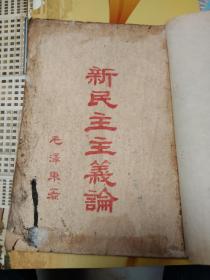 新民主主義論
毛澤東著